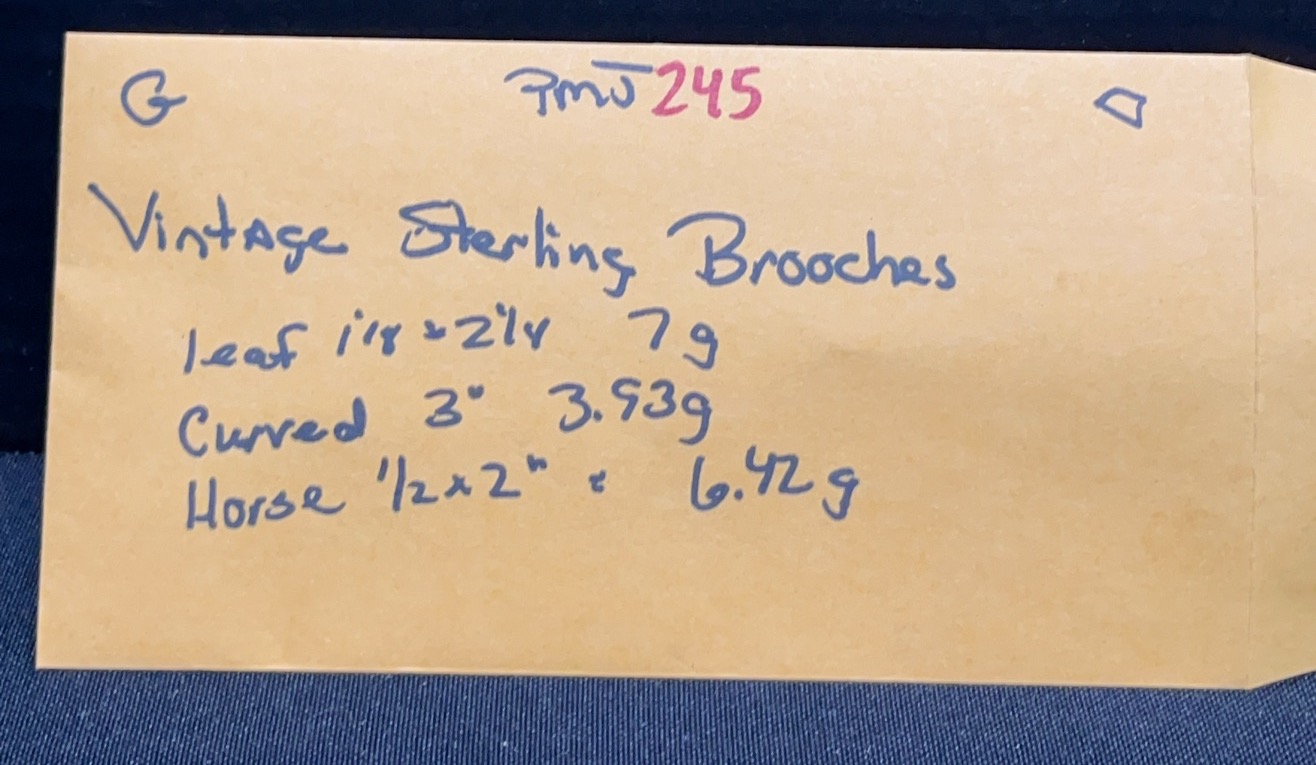 G PmJ 245 D
Vintage Sterling Brooches
leaf 1 1/8 x 2 1/4 7g
Curved 3" 3.93g
Horse 1/2 x 2" 6.42g